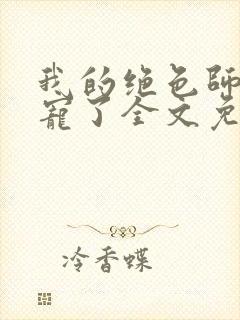 我的绝色師
寵了全文免
冷香蝶